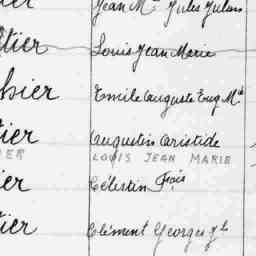 Jean M. Jules Julien
tier Louis Jean Marie
hier Emile Auguste Eug M.
tier Augustin Aristide
IER LOUIS JEAN MARIE
ier Célestin Fçois
tier Clément Georges